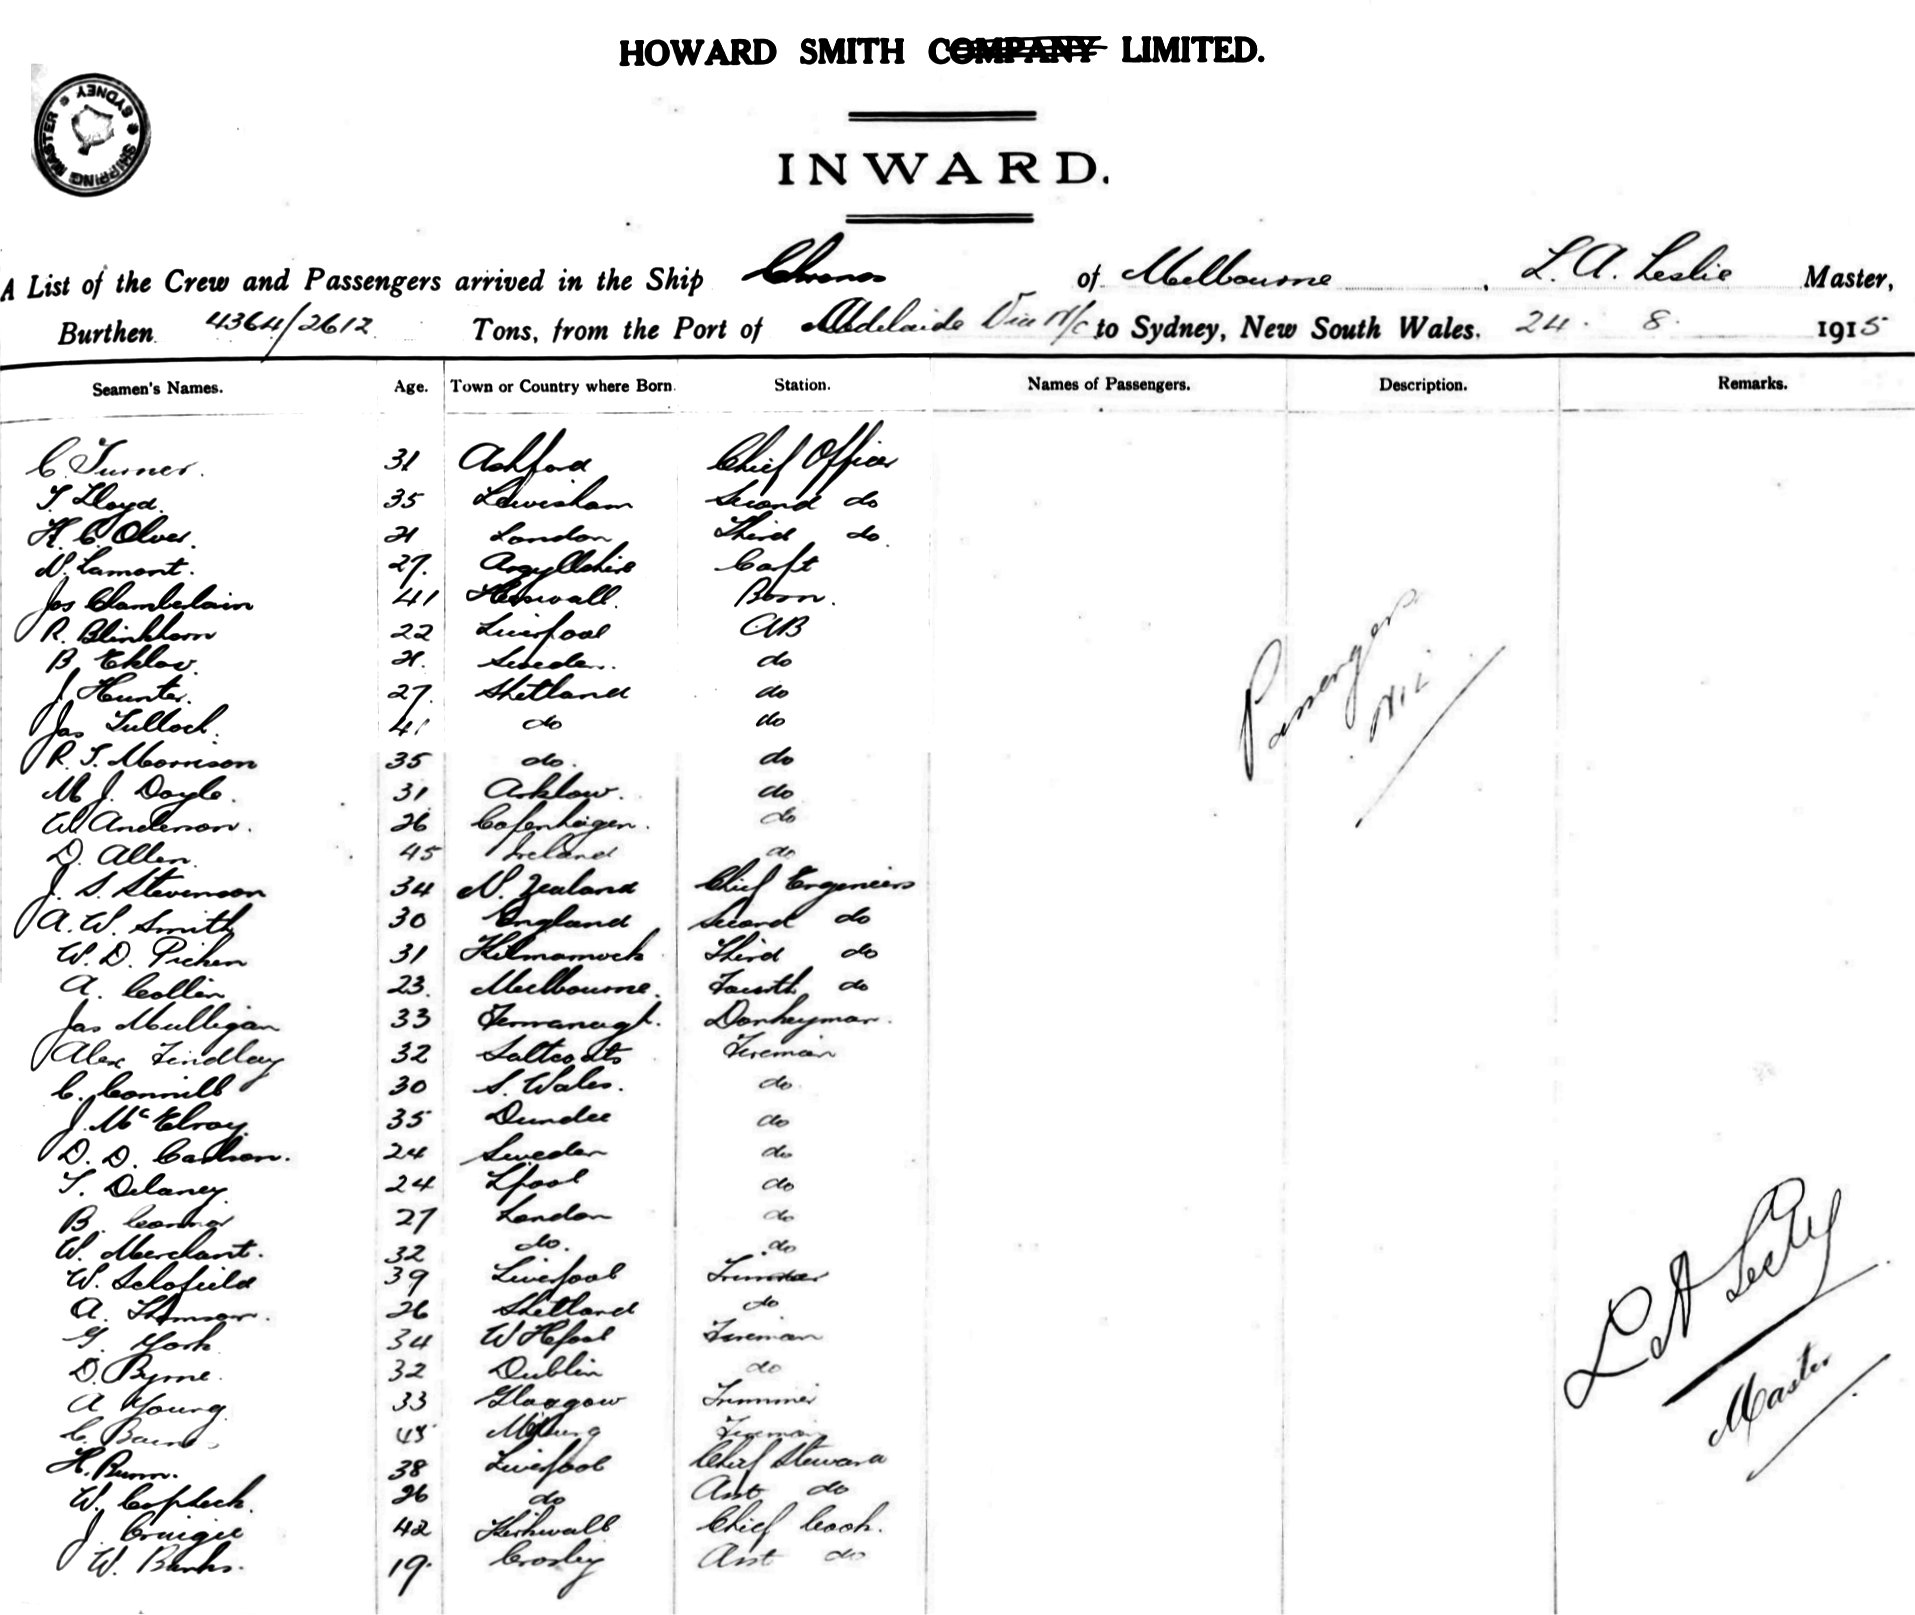 HOWARD SMITH COMPANY LIMITED.
SHIPPING MASTER SYDNEY
INWARD.
A List of the Crew and Passengers arrived in the Ship of Melbourne, L. A. Leslie Master,
Burthen 4364/2612 Tons, from the Port of Adelaide Via N/C to Sydney, New South Wales. 24. 8. 1915
Seamen's Names. Age. Town or Country where Born. Station. Names of Passengers. Description. Remarks.
C. Turner. 31 Ashford Chief Officer
T. Lloyd. 35 Lewisham Second do
H. C. Olver. 21 London Third do
N. Lamont. 27. Argyllshire Carpt
Jos Chamberlain 41 Heswall. Bosn.
R. Blinkhorn 22 Liverpool AB
B. Eklov. 21. Sweden. do
J. Hunter. 27. Shetland do
Jas Tulloch. 41 do do
R. T. Morrison 35 do. do
M J. Doyle. 31 Arklow. do
W Anderson. 26 Copenhagen. do
D. Allen. 45 Ireland do
J. S. Stevenson 34 N. Zealand Chief Engineers
A. W. Smith 30 England Second do
W. D. Picken 31 Kilmarnock Third do
A. Collin 23. Melbourne. Fourth do
Jas Mulligan 33 Fermanagh. Donkeyman.
Alex Findlay 32 Saltcoats Fireman
C. 30 S. Wales. do
J. McElroy. 35 Dundee do
D. D. Carlson. 24 Sweden do
T. Delaney 24 Lpool do
B. Connor 27 London do
W. Merchant. 32 do. do
W. Schofield 39 Liverpool Trimmer
A. Thomson. 26 Shetland do
G. York 34 W Hpool Fireman
D. Byrne. 32 Dublin do
A Young 33 Glasgow Trimmer
C. 45 Fireman
H. Bunn. 38 Liverpool Chief Steward
W. Copleck. 26 do Asst do
J. Craigie 42 Kirkwall Chief Cook.
W. Banks. 19. Crosby Asst do
Passengers
Nil
L A Leslie
Master